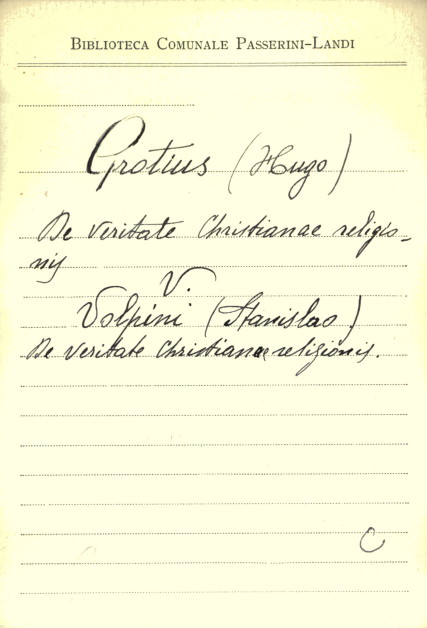 BIBLIOTECA COMUNALE PASSERINI-LANDI
Grotius (Hugo)
De veritate Christianae religio-
nis
V.
Volpini (Stanislao)
De veritate Christianae religionis.
C